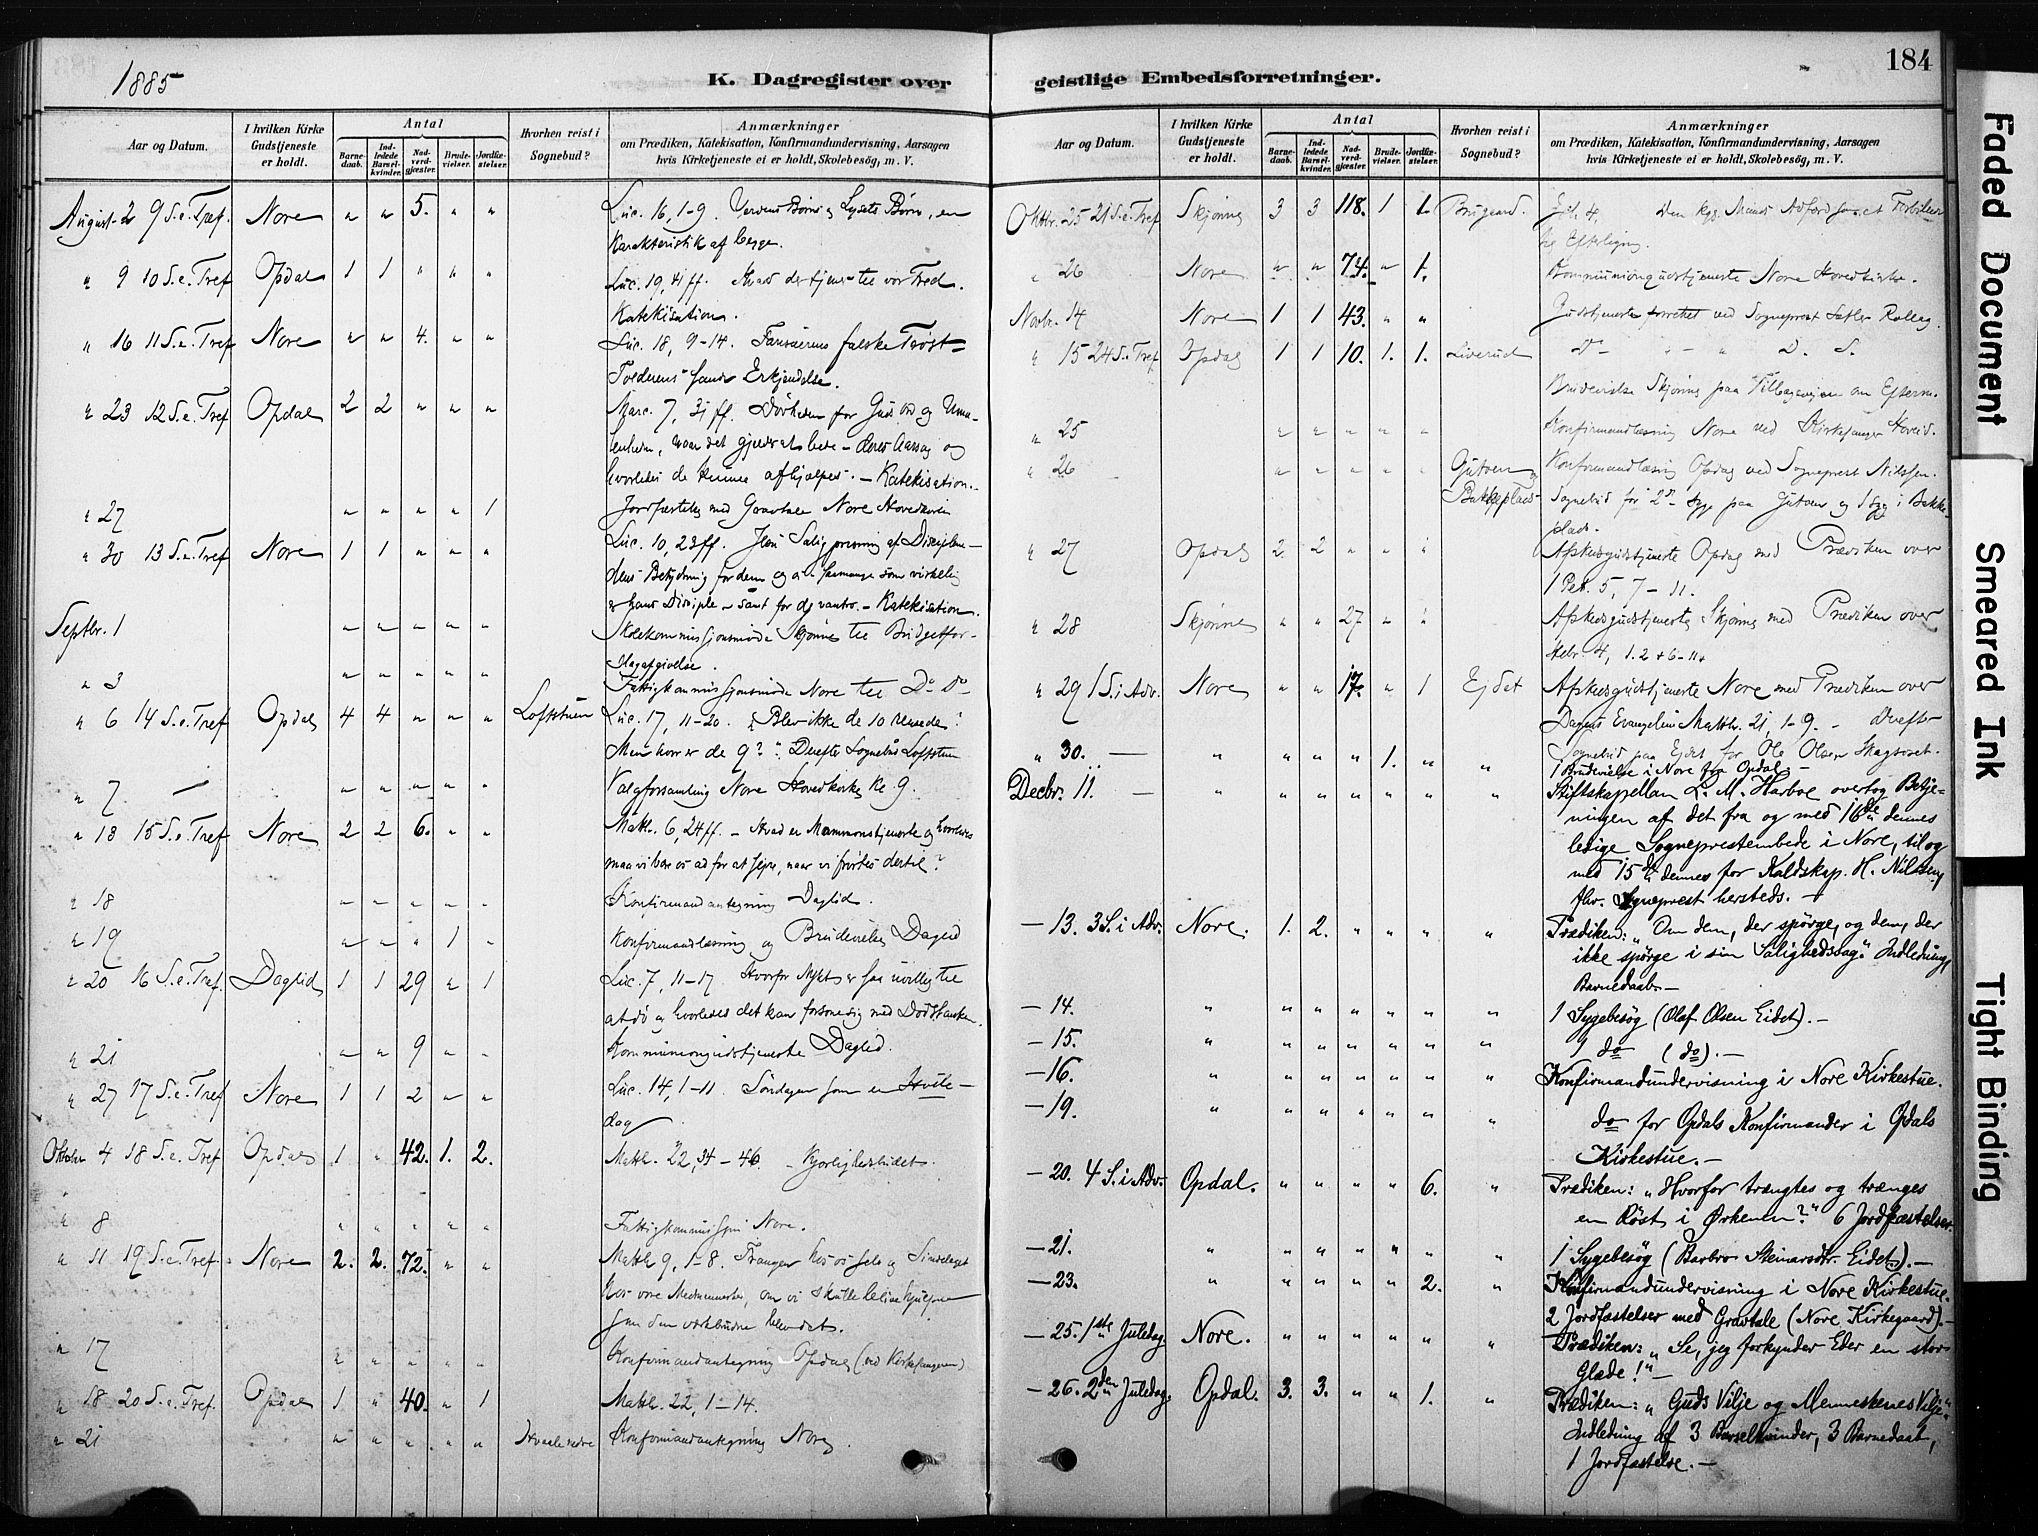 1885
K. Dagregister over geistlige Embedsforretninger.
184
Aar og Datum.
I hvilken Kirke Gudstjeneste er holdt.
Antal
Barnedaab.
Indledede Barselkvinder.
Nadverdgjæster.
Brudevielser.
Jordfæstelser.
Hvorhen reist i Sognebud?
Anmærkninger
om Prædiken, Katekisation, Konfirmandundervisning, Aarsagen
hvis Kirketjeneste ei er holdt, Skolebesög, m. V.
August 2 9 S. e. Tref. Nore " " 5. " " Luc. 16, 1-9. Verdens Børn og Lysets Børn, en
Karakteristik af begge.
" 9 10 S. e. Tref Opdal 1 1 " " " Luc. 19, 41 ff. Hvad der tjener til vor Fred.
Katekisation.
" 16 11 S. e. Tref Nore " " 4. " " Luc. 18, 9-14. Farisæerens falske Trøst
Tolderens sande Erkjendelse.
" 23 12 S. e. Tref Opdal 2 2 " " " Marc. 7, 31 ff. Døvheden for Guds Ord og
naar det gjælder at bede - deres Aarsag og
hvorledes de kunne afhjælpes. - Katekisation.
" 27 " " " " 1 Jordfæstelse med Gravtale Nore Hovedkirke
" 30 13 S. e. Tref Nore 1 1 " " " Luc. 10, 23 ff. Jesu Saligprisning af Disciplene -
dens Betydning for dem og som virkelig
er hans Disciple - samt for de vantro. - Katekisation.
Septbr. 1 " " " " " Skolekommissionsmøde Skjønne til Budgetfor-
slagafgivelse.
" 3 " " " " " Fattigkommissionsmøde Nore til Do Do
" 6 14 S. e. Tref Opdal 4 4 " " " Loftstuen Luc. 17, 11-20. "Blev ikke de 10 rensede?
Men hvor er de 9?" Derefter Sognebud Loftstuen
" 7 - " " " " " Valgforsamling Nore Hovedkirke Kl 9.
" 13 15 S. e. Tref Nore 2 2 6. " " Matth. 6, 24 ff. - Hvad er Mammonstjeneste og hvorledes
maa vi bære os ad for at sejre, naar vi fristes dertil?
" 18 " " " " " Konfirmandantegning Daglid.
" 19 " " " 1 " Konfirmandlæsning og Brudevielse Daglid
" 20 16 S. e. Tref. Daglid 1 1 29 " 1 Luc. 7, 11-17 Hvorfor
at dø og hvorledes det kan forsone sig med Dødstanken.
" 21 " " 9 " " Kommuniongudstjeneste Daglid.
" 27 17 S. e. Tref Nore 1 1 2 " " Luc. 14, 1-11 Søndagen som en Hvile-
dag
Oktober 4 18 S. e. Tref Opdal 1 " 42. 1. 2. Matth. 22, 34-46. Kjærlighedsbudet.
" 8 " " " " " Fattigkommission Nore.
" 11 19 S. e. Tref. Nore 2. 2. 72. " " Matth 9, 1-8. Trangen hos os selv og Sindelaget
hos vore Medmennesker, om vi skulle blive hjulpne
som den værkbrudne blev det.
" 17 " " " " " Konfirmandantegning Opdal (ved Kirkesangeren)
" 18 20 S. e. Tref. Opdal 1 " 40. " 1 Matth. 22, 1-14.
" 21 " " " " " Konfirmandantegning Nore.
Aar og Datum.
I hvilken Kirke Gudstjeneste er holdt.
Antal
Barnedaab.
Indledede Barselkvinder.
Nadverdgjæster.
Brudevielser.
Jordfæstelser.
Hvorhen reist i Sognebud?
Anmærkninger
om Prædiken, Katekisation, Konfirmandundervisning, Aarsagen
hvis Kirketjeneste ei er holdt, Skolebesög, m. V.
Oktbr. 25 21 S. e. Tref Skjønne 3 3 118. 1 1. Brugaard. Joh. 4,
Efterligning.
" 26 Nore " " 74. " 1. Kommuniongudstjeneste Nore Hovedkirke.
Novbr. 14 Nore 1 1 43. " " Gudstjeneste forrettet ved Sogneprest Rollag.
" 15 24 S. e. Tref Opdal 1 1 10. 1. 1. Liverud Do " - " D. S.
Brudevielse Skjønne paa Tilbageveien om Efterm.
" 25 " " " " " Konfirmandlæsning Nore ved Kirkesanger Hoveid.
" 26 " " " " " Gjutven og Konfirmandlæsning Opdal ved Sogneprest Nilssen.
Bakkeplads Sognebud for 2 syge paa Gjutven og 1 Syg i Bakke-
plads.
" 27 Opdal 2. 2 " " " Afskedsgudstjeneste Opdal med Prædiken over
1 Pet. 5, 7-11.
" 28 Skjønne " " 27 " " Afskedsgudstjeneste Skjønne med Prædiken over
Hebr. 4, 1. 2 + 6-11.
" 29 1 S. i Adv. Nore " " 17. " 1 Ejdet Afskedsgudstjeneste Nore med Prædiken over
Dagens Evangelium Matth. 21, 1-9. - Dereft-
Sognebud paa Ejdet for Ole Olsen
" 30. - " " " " 1. " " 1 Brudevielse i Nore fra Opdal. -
Decbr. 11. - " " " " " " " Stiftskapellan L. M. Harboe overtog Betje=
ningen af det fra og med 16de dennes
ledige Sogneprestembede i Nore, til og
med 15de dennes for Kaldskap. H. Nilssen,
fhv. Sogneprest hersteds. -
- 13. 3 S. i Adv. Nore. 1. 2. " " " " Prædiken: "Om dem, der spörge, og dem, der
ikke spörge i sin Salighedssag." Indledning,
Barnedaab. -
- 14. " " " " " " " 1 Sygebesög (Olaf Olsen Eidet). -
- 15. " " " " " " " 1 do (do). -
- 16. " " " " " " " Konfirmandundervisning i Nore Kirkestue.
- 19. " " " " " " " do for Opdals Konfirmander i Opdals
Kirkestue. -
- 20. 4 S. i Adv. Opdal. " " " " 6. " Prædiken: "Hvorfor trængtes og trænges
en Röst i Ørkenen?" 6 Jordfæstelser.
- 21. " " " " " " " 1 Sygebesög (Barbro Steinarsdtr. Eidet). -
- 23. " " " " " 2. " Konfirmandundervisning i Nore Kirkestue.
2 Jordfæstelser med Gravtale (Nore Kirkegaard). -
- 25. 1ste Juledag. Nore. " " " " " " Prædiken: "Se, jeg forkynder Eder en stor
Glæde!" -
- 26. 2den Juledag. Opdal. 3. 3. " " 1. " Prædiken: "Guds Vilje og Menneskenes Vilje."
Indledning af 3 Barselkvinder, 3 Barnedaab,
1 Jordfæstelse. -
Faded Document
Smeared Ink
Tight Binding